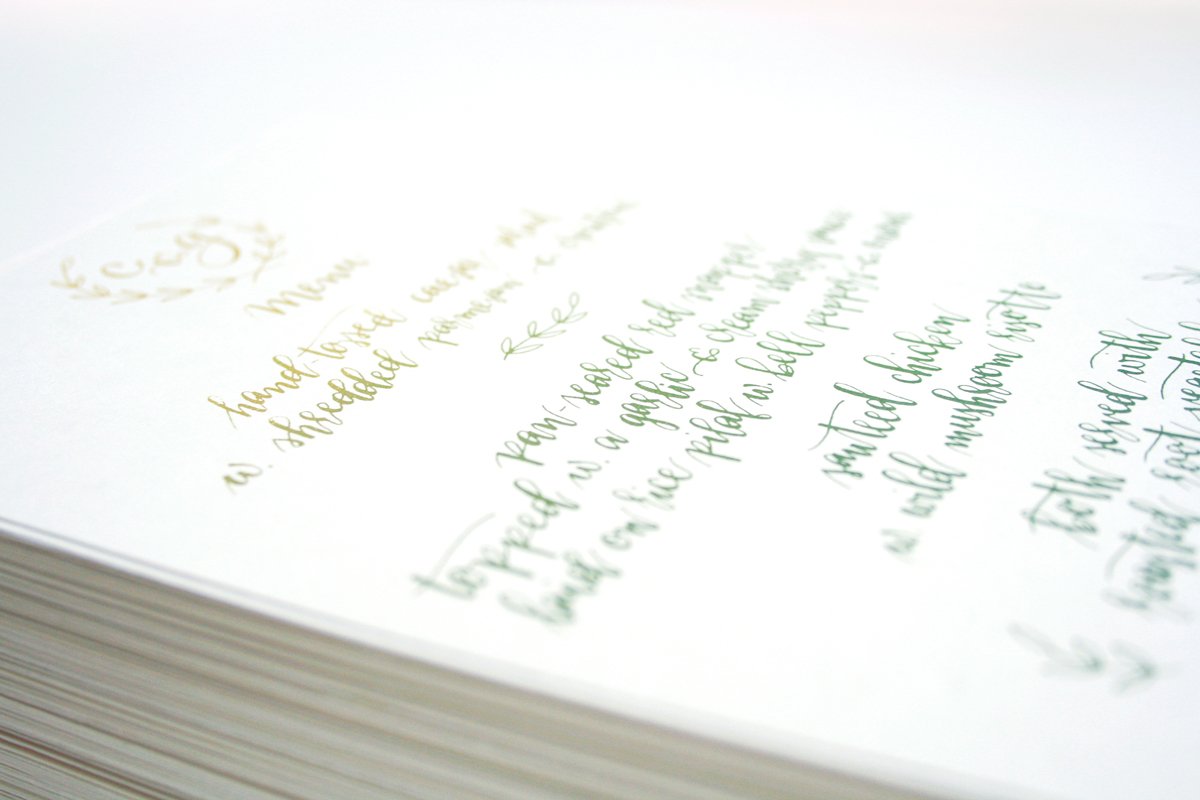 c & g
menu
hand tossed caesar salad
w. shredded parmesan &
pan-seared red snapper
topped w. a garlic & cream
laid on rice pilaf w. bell peppers
sauteed chicken
w. wild mushroom risotto
both served with
roasted root